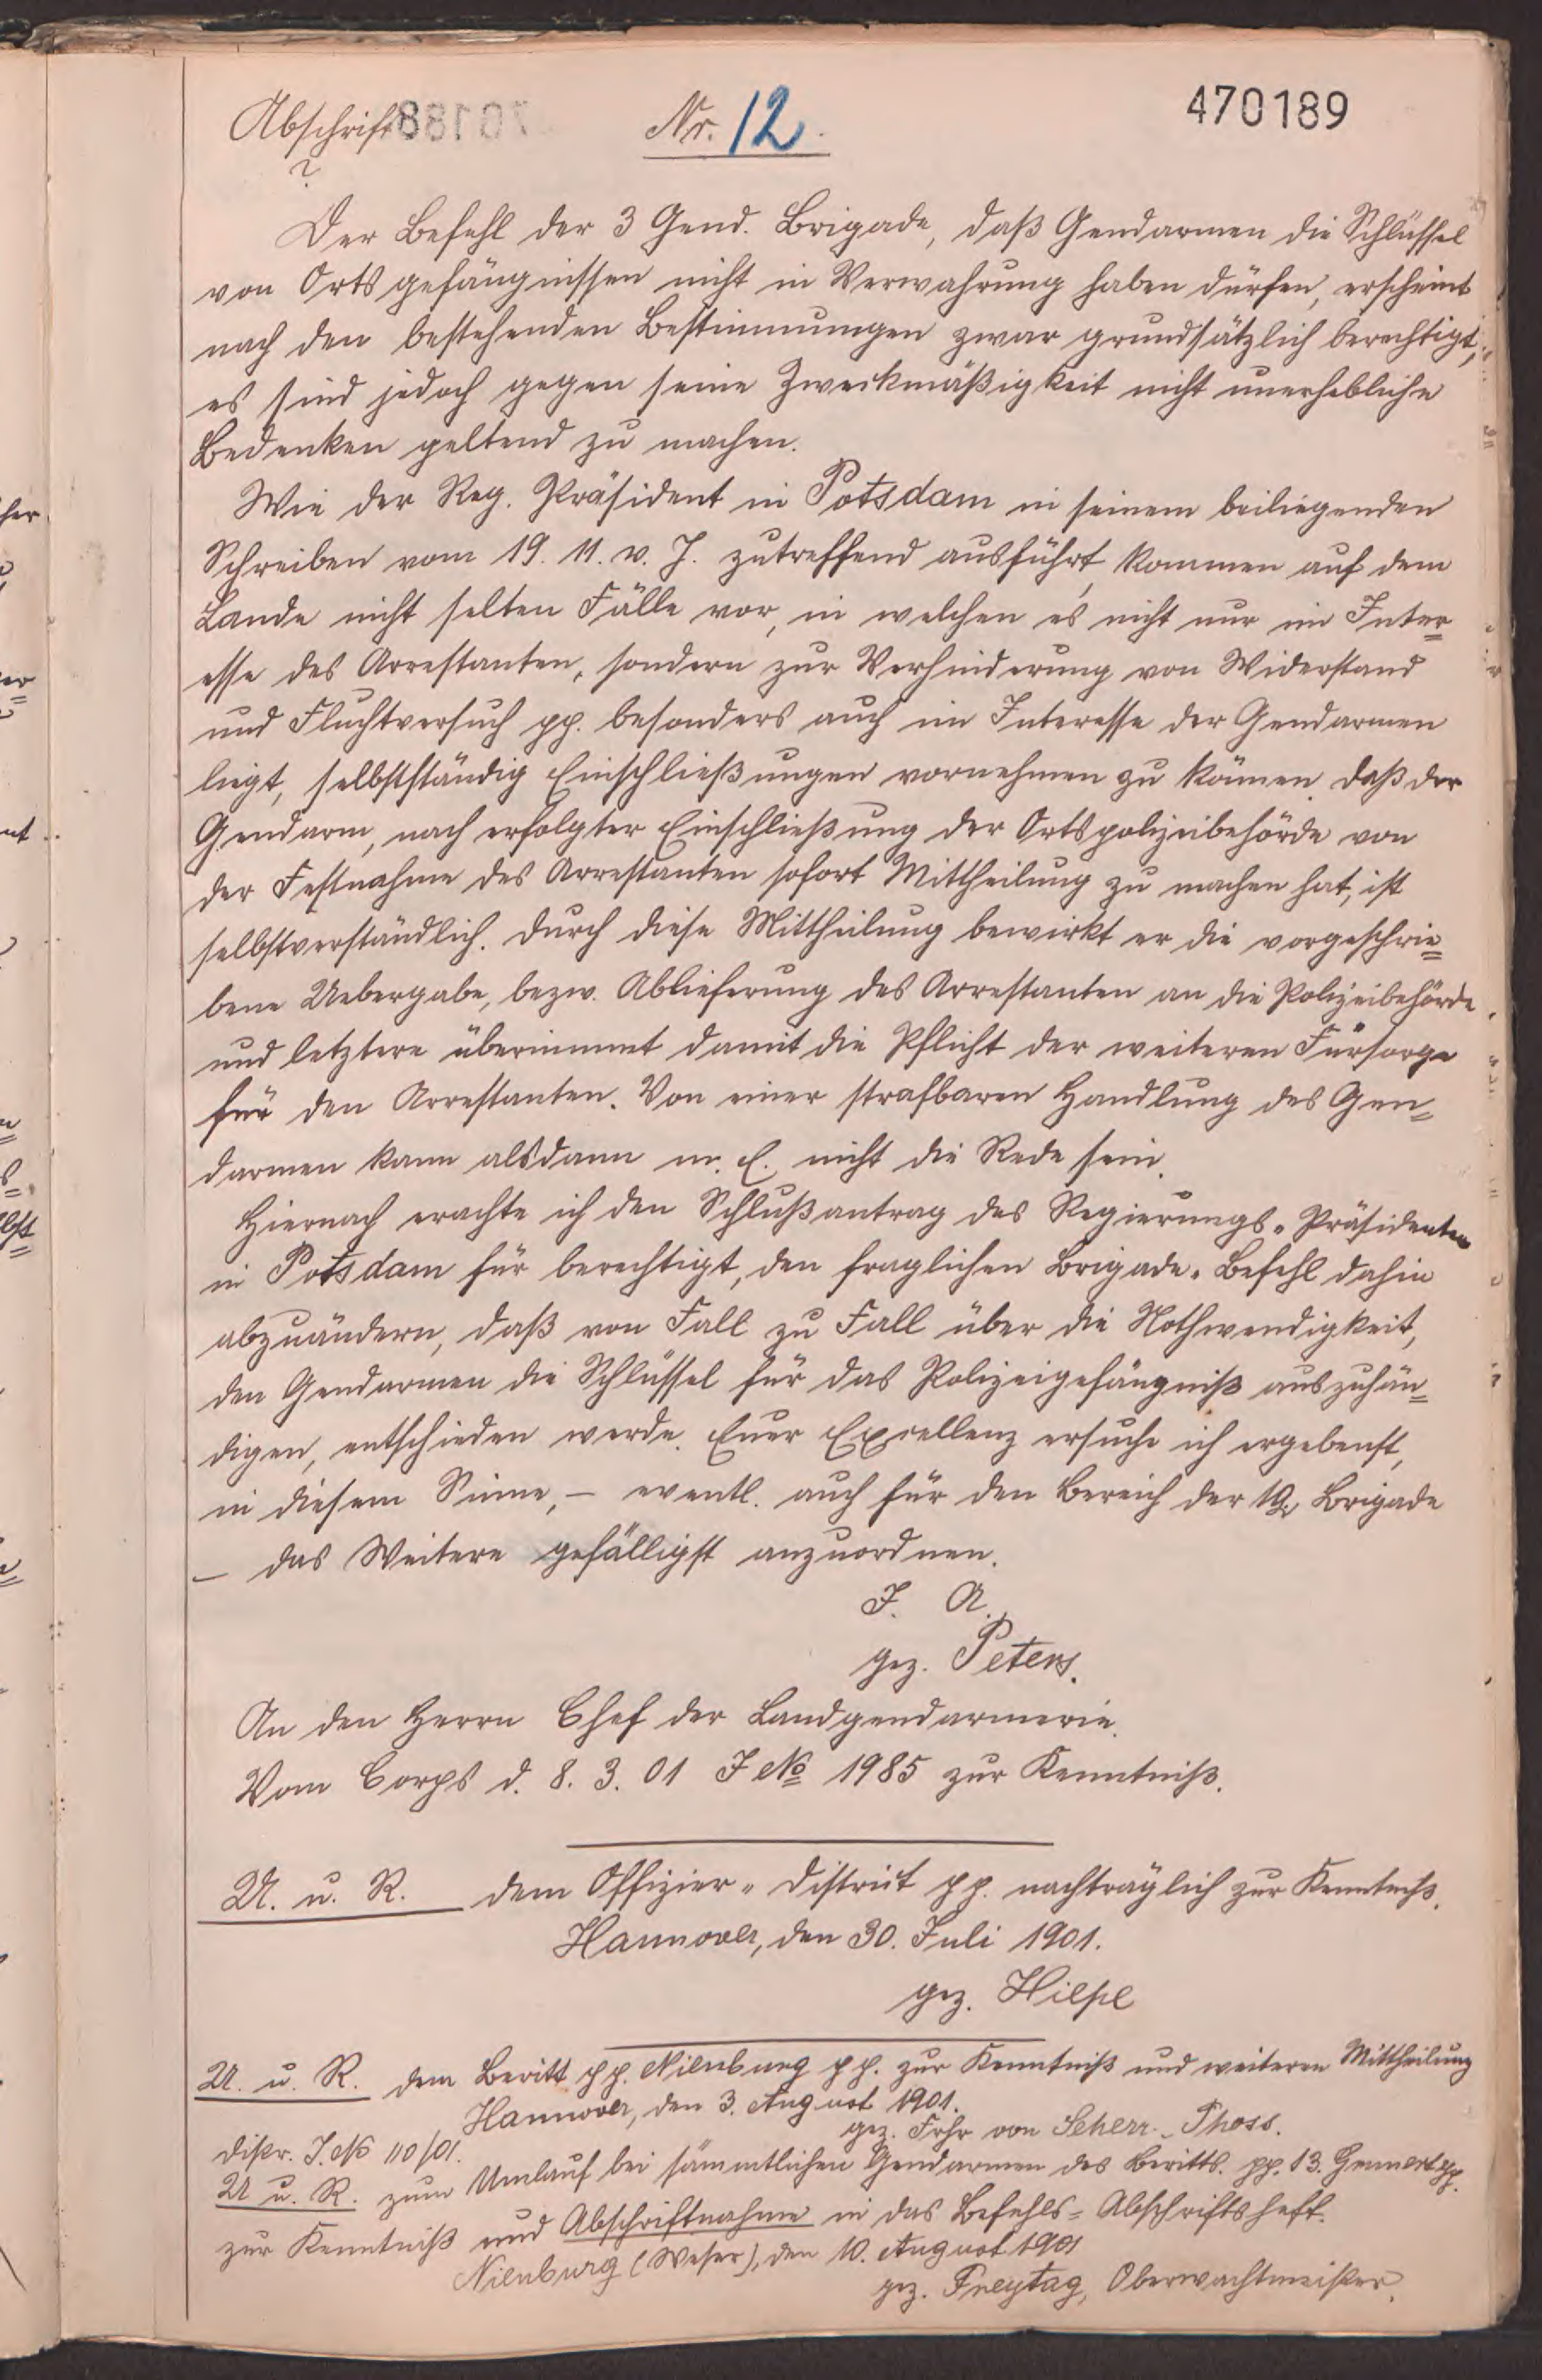 Abschrift
Nr. 12.
470189
Der Befehl der 3 Gend. Brigade, daß Gendarmen die Schlüssel
von Ortsgefängnissen nicht in Verwahrung haben dürfen, erscheint
nach den bestehenden Bestimmungen zwar grundsätzlich berechtigt,
es sind jedoch gegen seine Zweckmäßigkeit nicht unerhebliche
Bedenken geltend zu machen.
Wie der Reg. Präsident in Potsdam in seinem beiliegenden
Schreiben vom 19. 11. v. J. zutreffend ausführt, kommen auf dem
Lande nicht selten Fälle vor, in welchen es nicht nur im Inter=
esse des Arrestanten, sondern zur Verhinderung von Widerstand
und Fluchtversuch pp. besonders auch im Interesse der Gendarmen
liegt, selbstständig Einschließungen vornehmen zu können. Daß der
Gendarm, nach erfolgter Einschließung der Ortspolizeibehörde von
der Festnahme des Arrestanten sofort Mittheilung zu machen hat, ist
selbstverständlich. Durch diese Mittheilung bewirkt er die vorgeschrie=
bene Uebergabe, bezw. Ablieferung des Arrestanten an die Polizeibehörde
und letztere übernimmt damit die Pflicht der weiteren Fürsorge
für den Arrestanten. Von einer strafbaren Handlung des Gen=
darmen kann alsdann m. E. nicht die Rede sein.
Hiernach erachte ich den Schlußantrag des Regierungs-Präsidenten
in Potsdam für berechtigt, den fraglichen Brigade-Befehl dahin
abzuändern, daß von Fall zu Fall über die Nothwendigkeit,
den Gendarmen die Schlüssel für das Polizeigefängniß auszuhän=
digen, entschieden werde. Euer Excellenz ersuche ich ergebenst,
in diesem Sinne, – eventl. auch für den Bereich der 10. Brigade
– das Weitere gefälligst anzuordnen.
I. A.
gez. Peters.
An den Herrn Chef der Landgendarmerie.
Vom Corps d. 8. 3. 01 J No 1985 zur Kenntniß.
U. u. R. dem Offizier-District pp. nachträglich zur Kenntniß.
Hannover, den 30. Juli 1901.
gez. Hilpe
U. u. R. dem Beritt pp. Nienburg pp. zur Kenntniß und weiteren Mittheilung
Hannover, den 3. August 1901.
gez. Frhr von Scherr-Thoss.
Distr. J. No 110/01.
U u. R. zum Umlauf bei sämmtlichen Gendarmen des Beritts. pp. 13. pp.
zur Kenntniß und Abschriftnahme in das Befehls=Abschriftsheft.
Nienburg (Weser), den 10. August 1901
gez. Freytag, Oberwachtmeister.